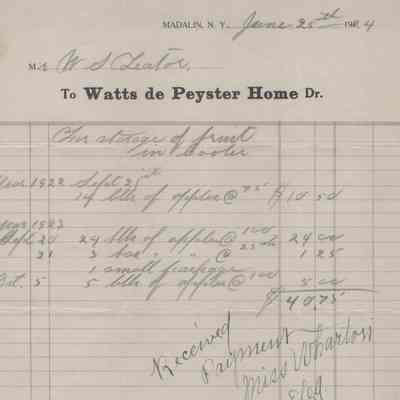 MADALIN, N. Y. June 25th 1924
Mr W S Teator.
To Watts de Peyster Home Dr.
For storage of fruit
in cooler
Year 1922 Sept 25th
14 bbls of apples @ 75 $10 50
Year 1923
Sept. 20 24 bbls of apples @ 100 24 00
21 5 box " " @ 25 cts 1 25
1 small
Oct. 5 5 bbls of apples @ 100 5 00
$40.75
Received
Payment
Miss Wharton